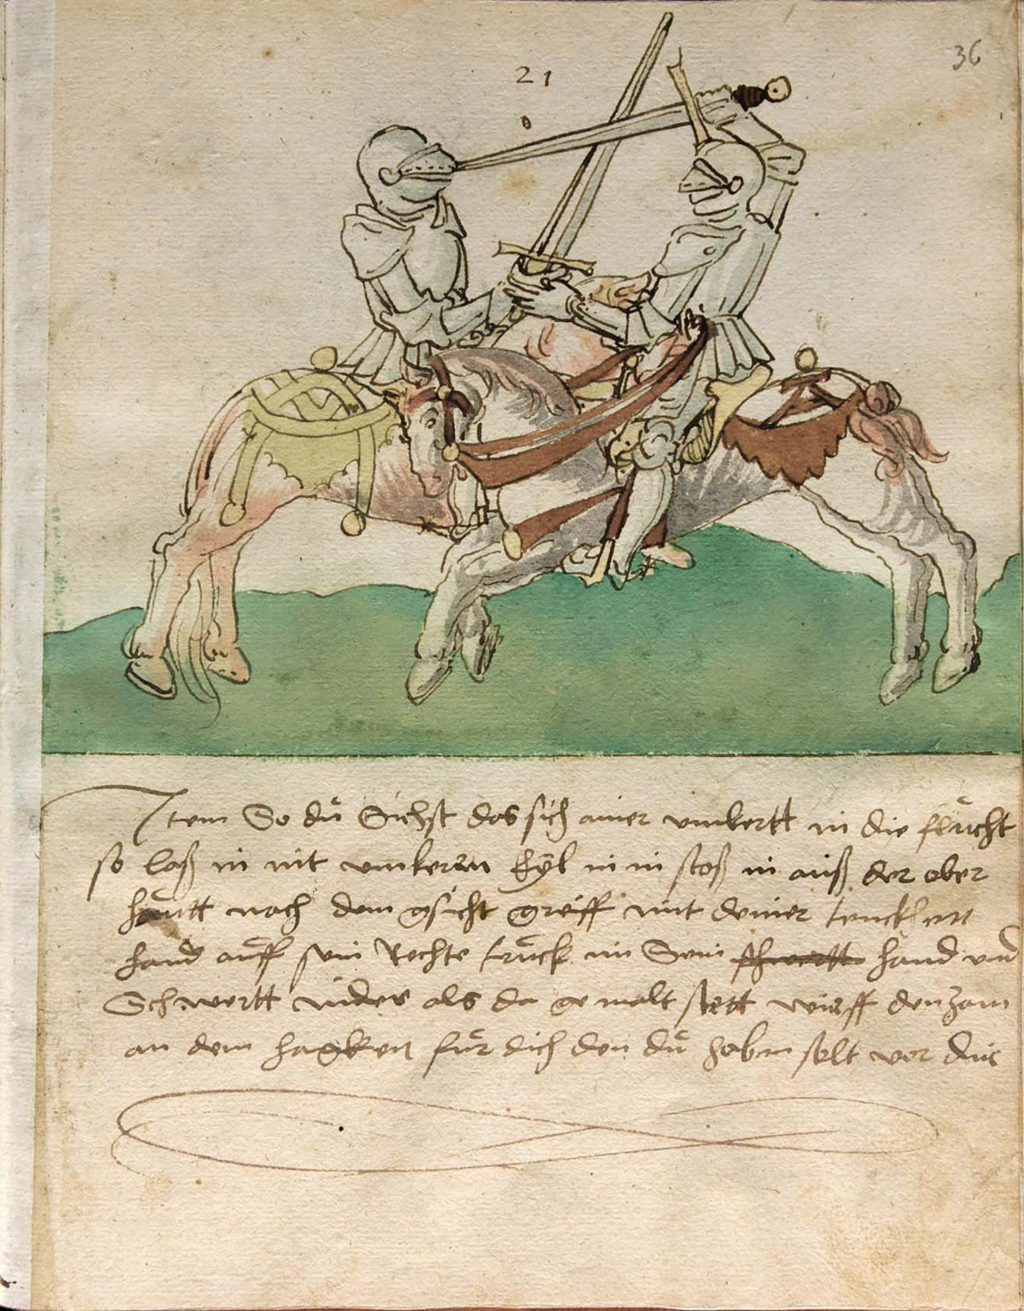 36
21
Item So dü Sichst das sich ainer umkertt in die flücht
so laß in nit umkeren Eyl in in stoß in auß der ober
hautt nach dem gsicht greiff mit deiner lencken
hand auff sein Rechte truck im Sein schwertt hand und
Schwertt nider als da gemalt stett wirff den zam
an dem hagken für dich den dü haben solt vor dir